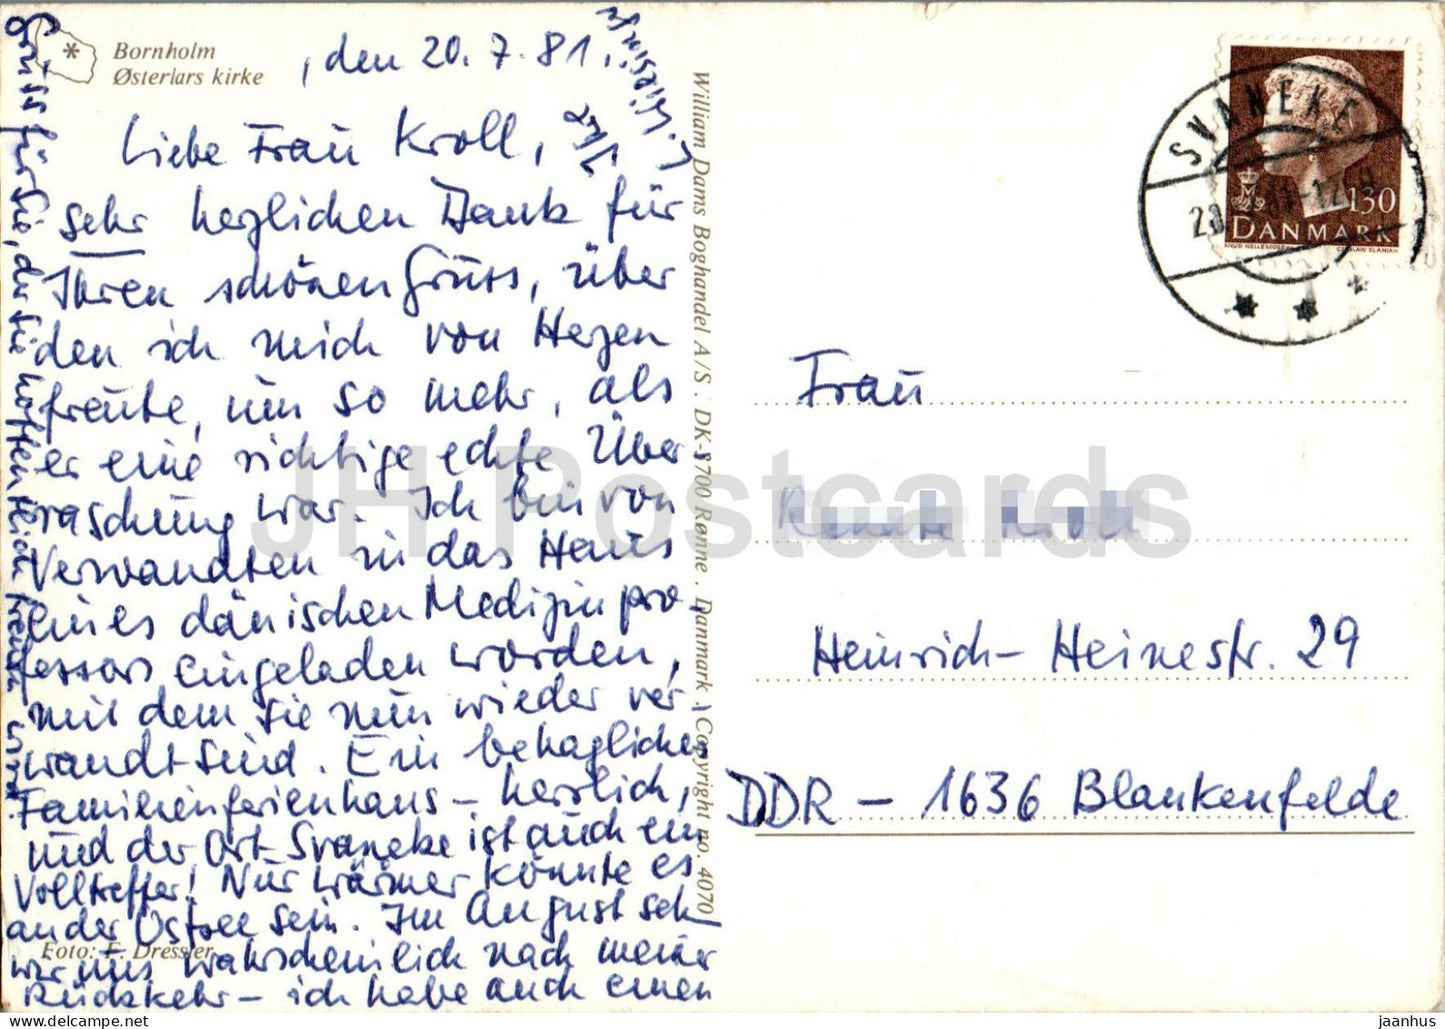 Bornholm
Østerlars kirke
, den 20.7.81.
Liebe Frau Kroll,
sehr herzlichen Dank für
Ihren schönen Gruss, über
den ich mich von Herzen
freute, um so mehr, als
er eine richtige echte Über
raschung war. Ich bin von
Verwandten in das Haus
eines dänischen Medizinpro-
fessors eingeladen worden,
mit dem sie nun wieder ver-
wandt sind. Ein behagliches
Familienferienhaus – herrlich,
und der Ort Svaneke ist auch ein
Volltreffer! Nur wärmer könnte es
an der Ostsee sein. Im August seh
wir uns wahrscheinlich nach meiner
Rückkehr – ich habe auch einen
Gruss für Sie, den Sie hoffentlich
Ihr
Foto: F. Dressler
William Dams Boghandel A/S . DK-3700 Rønne . Danmark . Copyright no. 4070
SVANEKE
130
DANMARK
Frau
Kroll
Heinrich-Heinestr. 29
DDR – 1636 Blankenfelde
JH Postcards
jaanhus